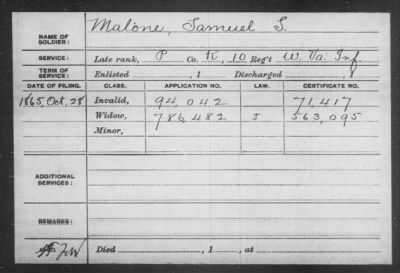 NAME OF SOLDIER: Malone, Samuel S.
SERVICE: Late rank, P Co. K, 10 Reg't W. Va. Inf.
TERM OF SERVICE: Enlisted , 1 Discharged , 1
DATE OF FILING. CLASS. APPLICATION NO. LAW. CERTIFICATE NO.
1865, Oct. 28 Invalid, 94,042 71,417
Widow, 786,482 J 563,095
Minor,
ADDITIONAL SERVICES:
REMARKS:
Died , 1 , at